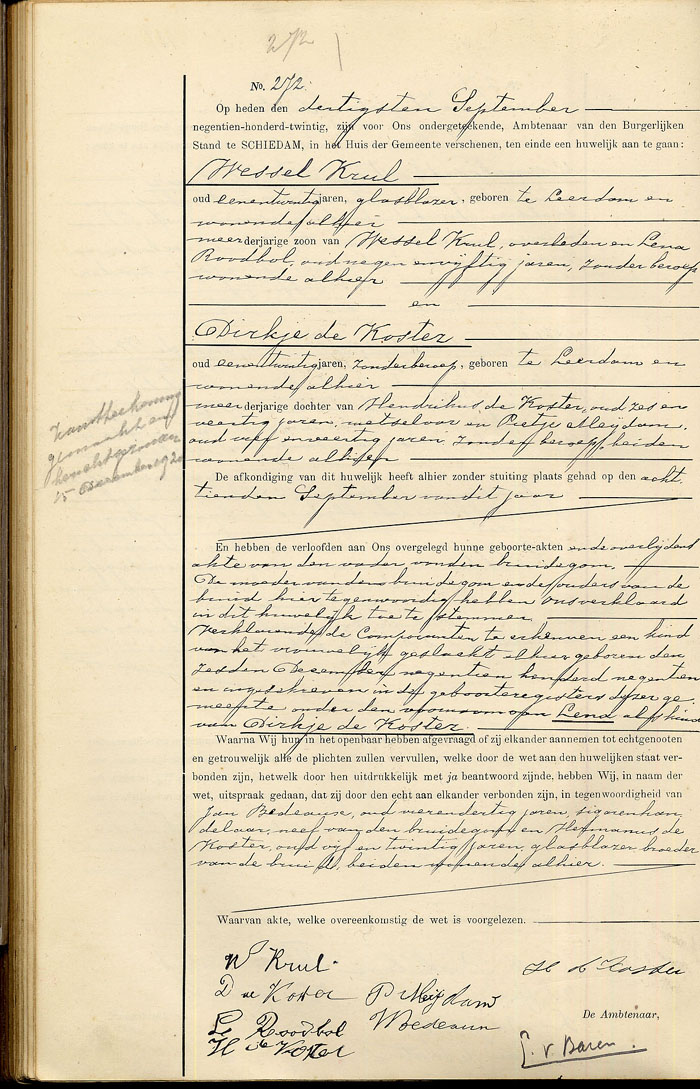 272
No. 272.
Op heden den dertigsten September
negentien-honderd-twintig, zijn voor Ons ondergeteekende, Ambtenaar van den Burgerlijken
Stand te SCHIEDAM, in het Huis der Gemeente verschenen, ten einde een huwelijk aan te gaan:
Wessel Krul
oud eenentwintig jaren, glasblazer, geboren te Leerdam en
wonende alhier
meerderjarige zoon van Wessel Krul, overleden en Lena
Roodbol, oud negen en vijftig jaren, zonder beroep
wonende alhier
en
Dirkje de Koster
oud eenentwintig jaren, zonder beroep, geboren te Leerdam en
wonende alhier
meerderjarige dochter van Hendrikus de Koster, oud zes en
veertig jaren, metselaar en Pietje Meydam,
oud vijf en veertig jaren, zonder beroep, beiden
wonende alhier
De afkondiging van dit huwelijk heeft alhier zonder stuiting plaats gehad op den acht
tienden September van dit jaar
En hebben de verloofden aan Ons overgelegd hunne geboorte-akten en de overlijdens
akte van den vader van den bruidegom.
De moeder van den bruidegom en de ouders van de
bruid hier tegenwoordig hebben ons verklaard
in dit huwelijk toe te stemmen.
Verklarende de Comparanten te erkennen een kind
van het vrouwelijk geslacht alhier geboren den
zesden December negentien honderd negentien
en ingeschreven in de geboorteregisters dezer ge
meente onder den voornaam van Lena als kind
van Dirkje de Koster.
Waarna Wij hun in het openbaar hebben afgevraagd of zij elkander aannemen tot echtgenooten
en getrouwelijk alle de plichten zullen vervullen, welke door de wet aan den huwelijken staat ver-
bonden zijn, hetwelk door hen uitdrukkelijk met ja beantwoord zijnde, hebben Wij, in naam der
wet, uitspraak gedaan, dat zij door den echt aan elkander verbonden zijn, in tegenwoordigheid van
Jan Bedeaux, oud vierendertig jaren, sigarenhan
delaar, neef van den bruidegom en Hermanus de
Koster, oud vijf en twintig jaren, glasblazer broeder
van de bruid, beiden wonende alhier.
Waarvan akte, welke overeenkomstig de wet is voorgelezen.
Kantteekening
gemaakt en
15 December 1920
W Krul
H de Koster
D de Koster P Meijdam
L Roodbol
H de Koster
De Ambtenaar,
v Baren.